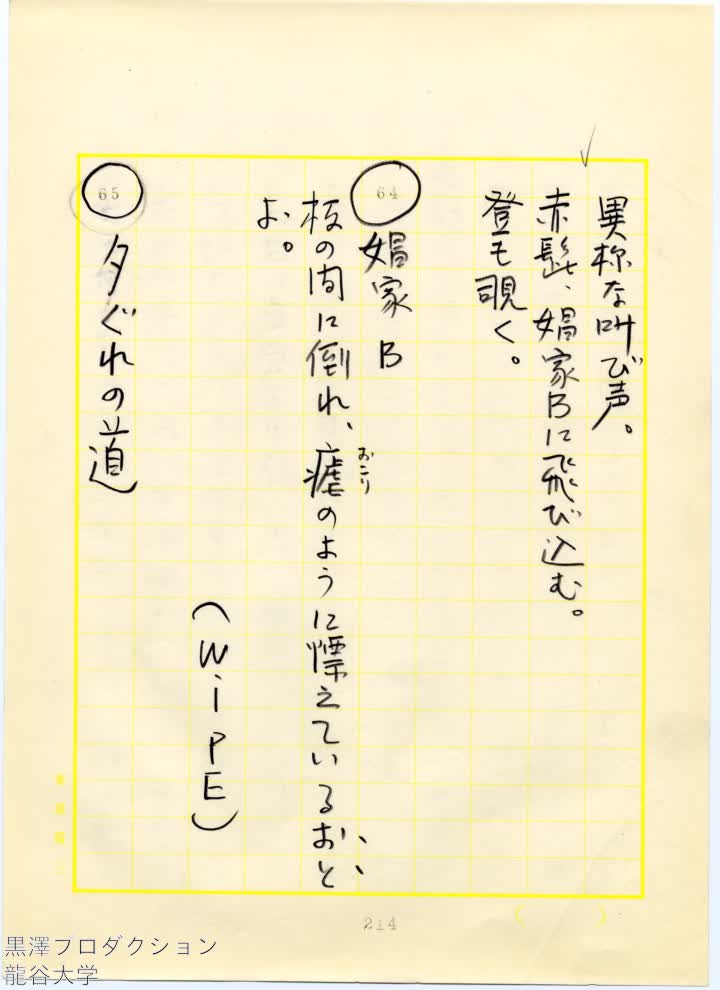 異様な叫び声。
赤髭、娼家Bに飛び込む。
登も覗く。
64
娼家 B
板の間に倒れ、瘧のように慄えているおと
おこり
よ。
(WiPE)
65
夕ぐれの道
214
黒澤プロダクション
龍谷大学